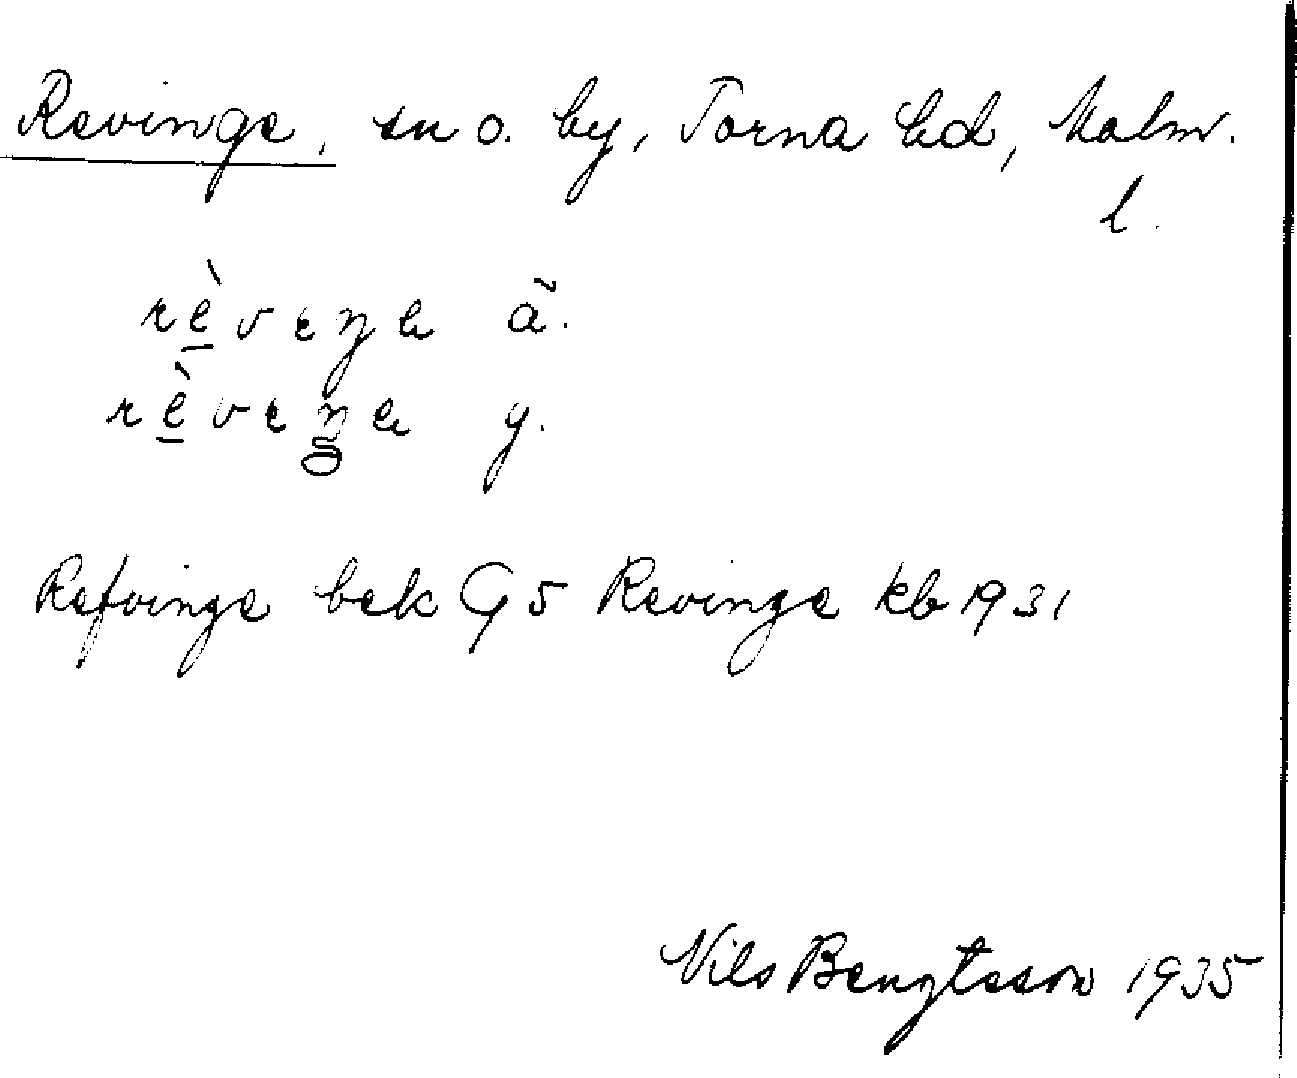 Revinge, sn o. by, Torna hd, Malm.
l.
rèvıŋe ä.
rèvıŋe y.
Refvinge bek G5 Revinge kb 1931
Nils Bengtsson 1935